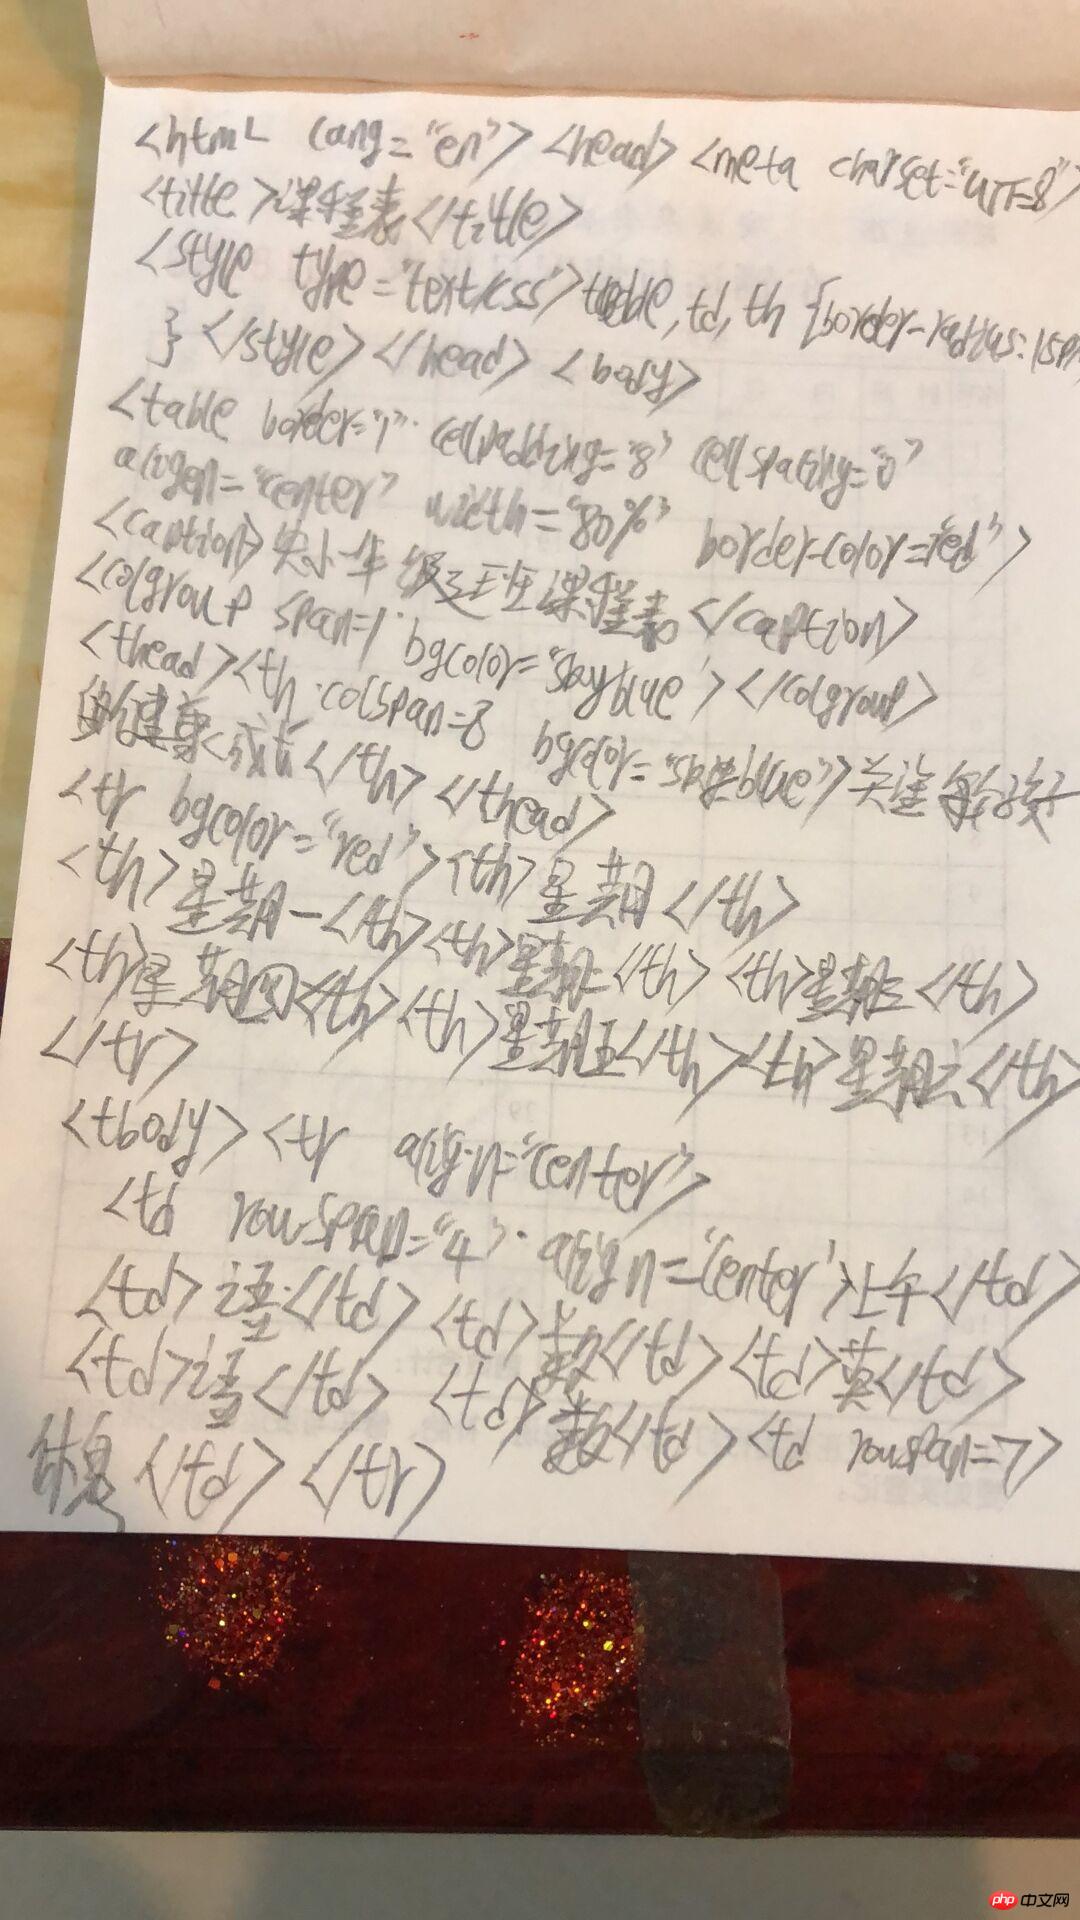 <html lang="en"><head><meta charset="UTF-8">
<title>课程表</title>
<style type="text/css">table,td,th {border-radius:15px
}</style></head><body>
<table border="1" cellpadding="8" cellspacing="0"
align="center" width="80%" border-color="red">
<caption>实小一年级 班课程表</caption>
<colgroup span=1 bgcolor="skyblue"></colgroup>
<thead><th colspan=8 bgcolor="skyblue">关注每个孩子
的健康成长</th></thead>
<tr bgcolor="red"><th>星期</th>
<th>星期一</th><th>星期二</th><th>星期三</th>
<th>星期四</th><th>星期五</th><th>星期六</th>
</tr>
<tbody><tr align="center">
<td rowspan="4" align="center">上午</td>
<td>语</td><td>数</td><td>英</td>
<td>语</td><td>数</td><td rowspan=7>
休息</td></tr>
php 中文网